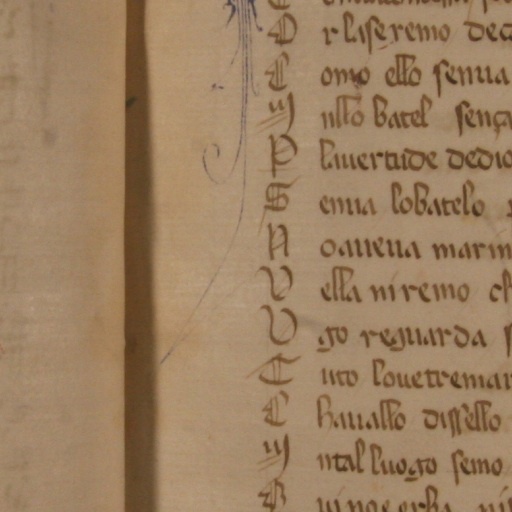 O r laseremo dec
C omo ello senua
M nllo batel sença
P lauertude dedio
S enua lobatelo
N oaueua marin
V ella ni remo ch
V go reguarda s
T uto louetremar
C hauallo dissello
M ntal luogo semo